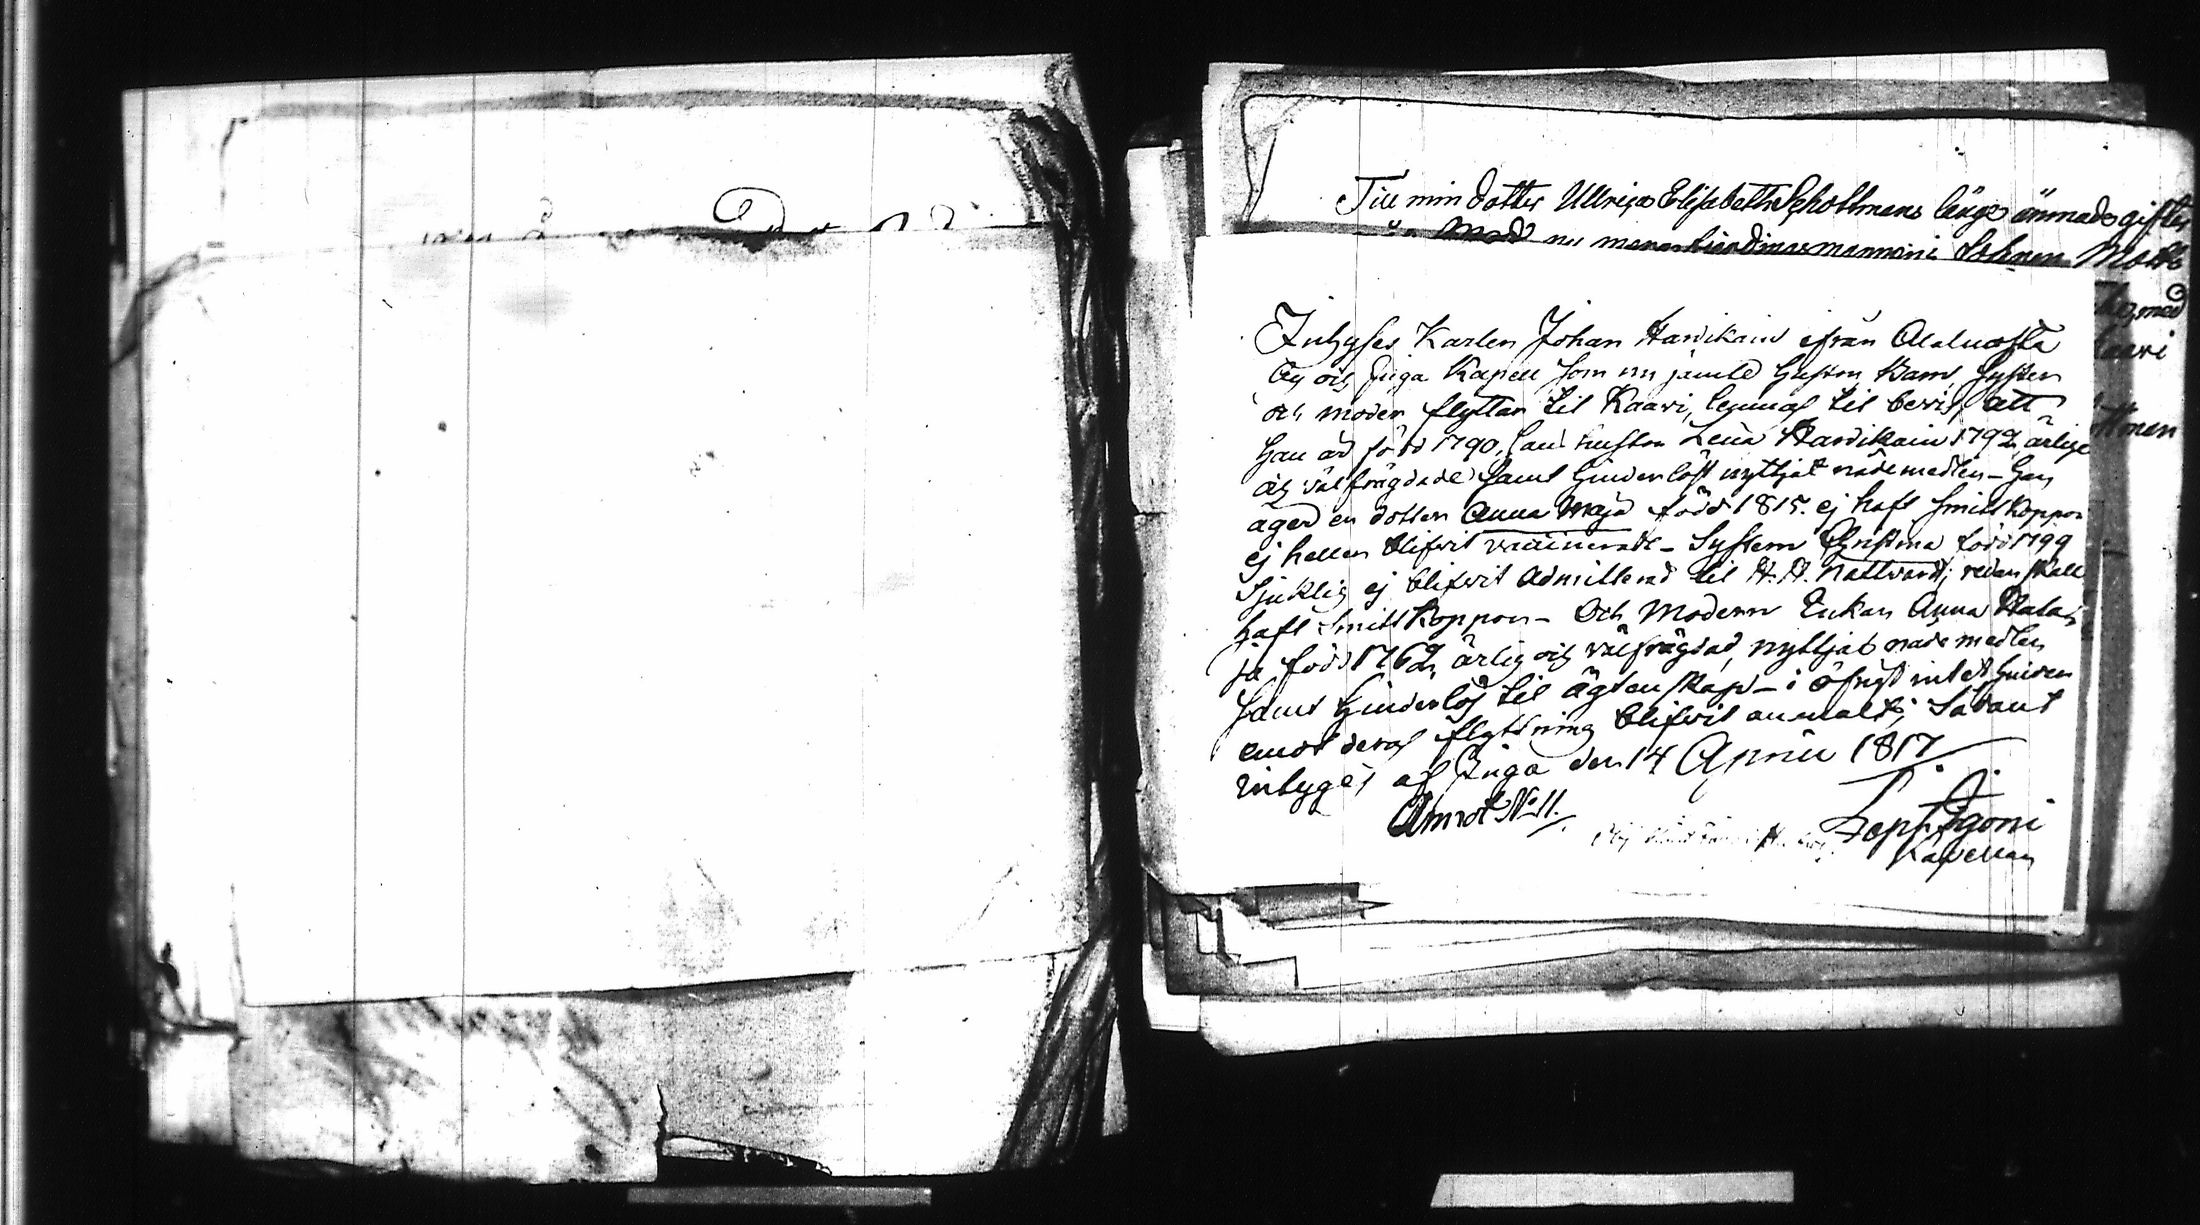 Till min dotter Ullrica Elisabeth Schothmans längo ämnade gifter
nu mera Sohnen Matts
med
Kaari
ttonen
Inhyses Karlen Johan Harikain ifrån Alaluosta
By och Kapell som nu jämte hustru Barn, Syster
och moder flyttar til Kaavi, lemnas til bevis, att
han är född 1790, hustrun Lena Harikain 1792 ärlige
och välfrägdade samt hinderlöst nyttjat nådemedlen – han
äger en dotter Anna Maja född 1815. ej haft Smittkoppor
ej heller blifvit vaccinerade – Systern Christina född 1799
Sjuklig ej blifvit admitterad til H. H. Nattvard; redan skall
haft Smittkoppor – Och Modern Enkan Anna Hata-
ja född 1762, ärlig och välfrägdad, nyttjat nådemedlen
samt hinderlös til ägtenskap – i öfrigt intet hinder
emot deras flyttning blifvit anmält; Sådant
intygas af den 14 Aprill 1817
Annot No 11.
Kapellan